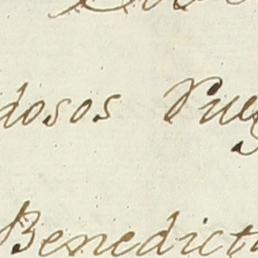 dosos Pue
Benedict